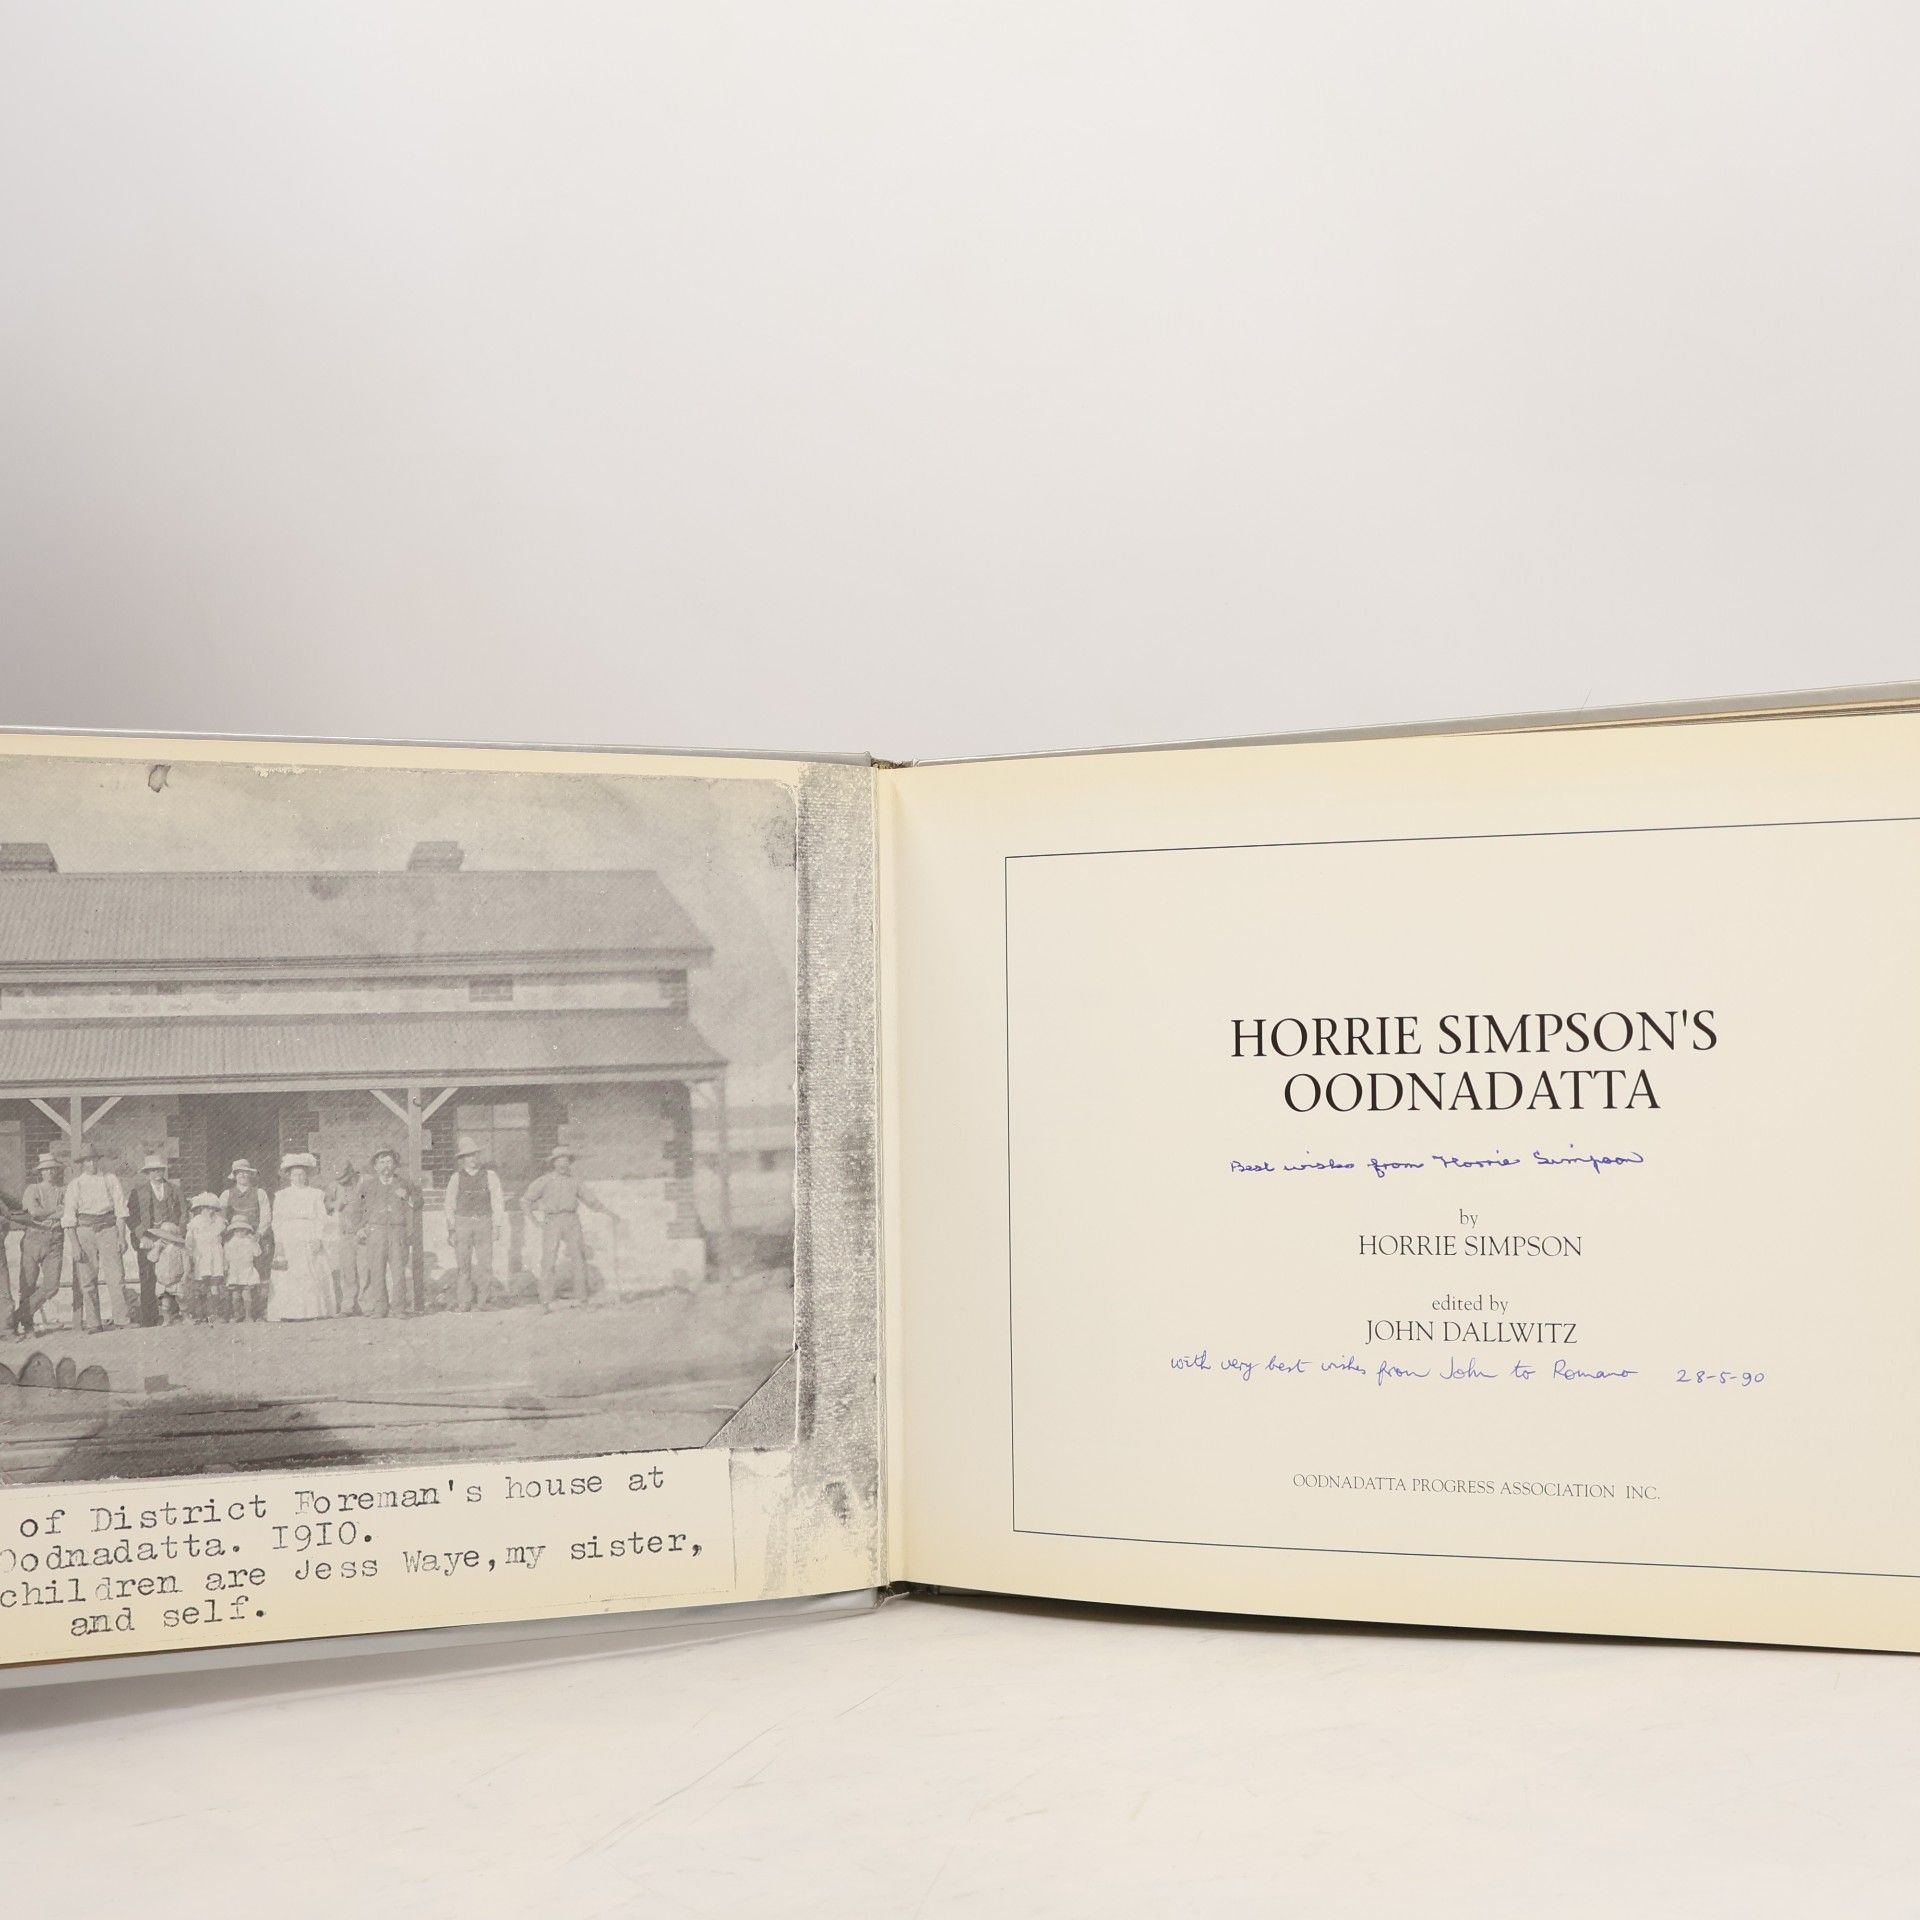 of District Foreman's house at
Oodnadatta. I9I0.
children are Jess Waye,my sister,
and self.
HORRIE SIMPSON'S
OODNADATTA
Best wishes from Horrie Simpson
by
HORRIE SIMPSON
edited by
JOHN DALLWITZ
with very best wishes from John to Romano 28-5-90
OODNADATTA PROGRESS ASSOCIATION INC.